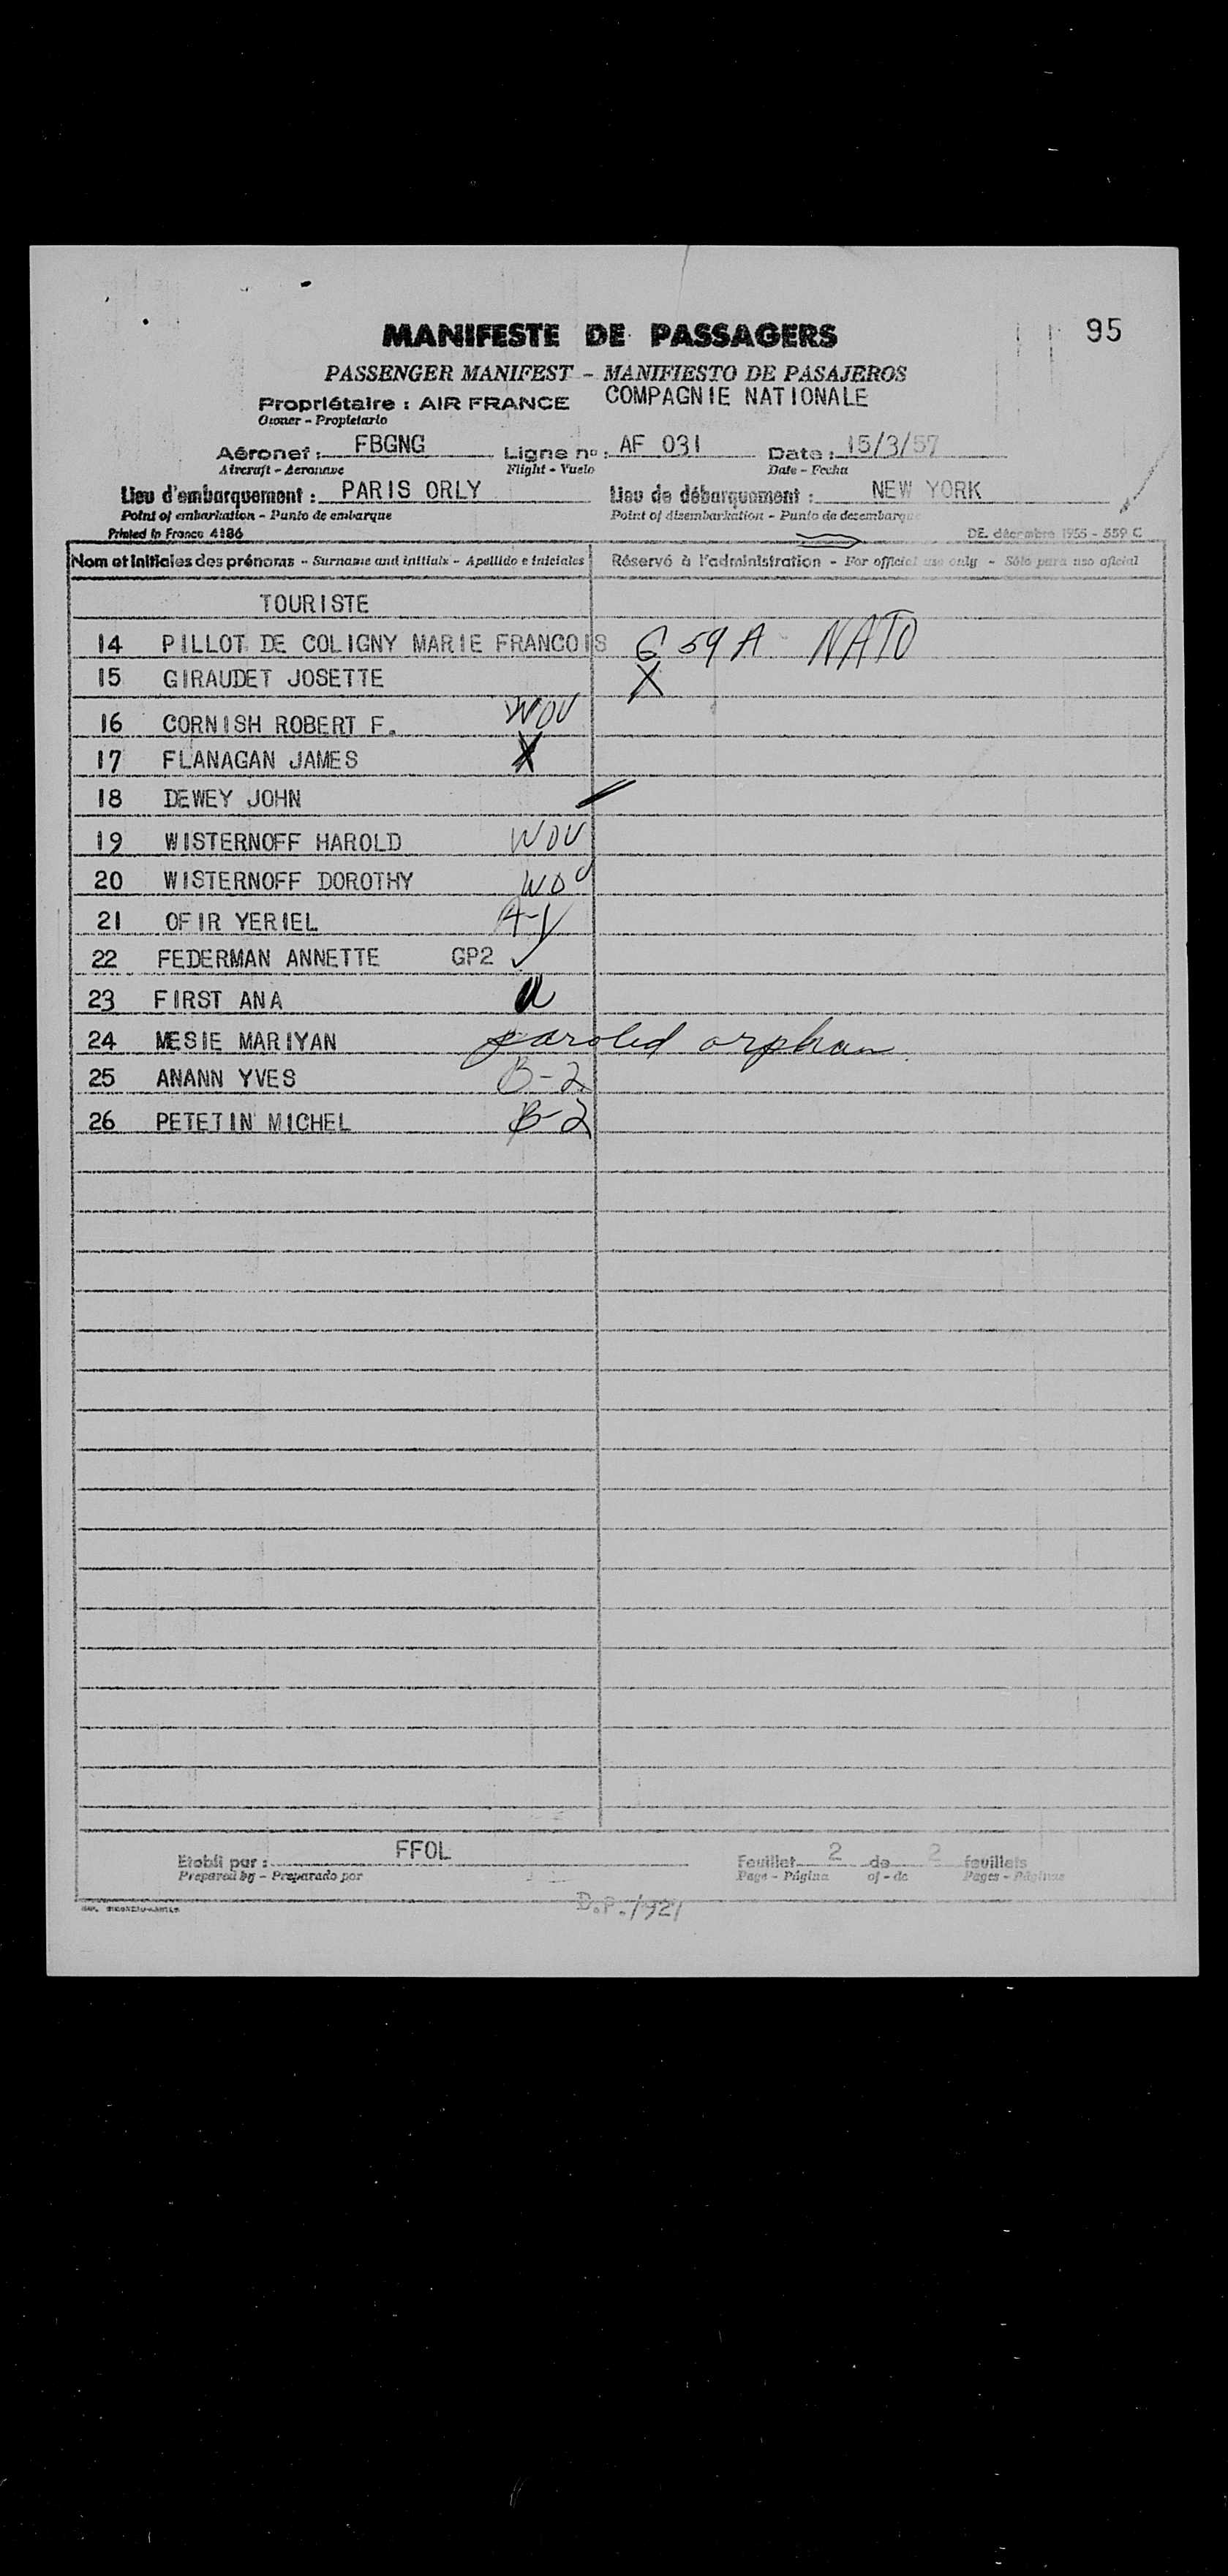 95
MANIFESTE DE PASSAGERS
PASSENGER MANIFEST - MANIFIESTO DE PASAJEROS
Propriétaire : AIR FRANCE COMPAGNIE NATIONALE
Owner - Propietario
Aéronef : FBGNG Ligne n° : AF 031 Date : 15/3/57
Aircraft - Aeronave Flight - Vuelo Date - Fecha
Lieu d'embarquement : PARIS ORLY Lieu de débarquement : NEW YORK
Point of embarkation - Punto de embarque Point of disembarkation - Punto de desembarque
Printed in France 4186 DE. décembre 1955 - 559 C
Nom et initiales des prénoms - Surname and initials - Apellido e iniciales Réservé à l'administration - For official use only - Sólo para uso oficial
TOURISTE
14 PILLOT DE COLIGNY MARIE FRANCOIS G 59 A NATO
15 GIRAUDET JOSETTE X
16 CORNISH ROBERT F. WOU
17 FLANAGAN JAMES X
18 DEWEY JOHN
19 WISTERNOFF HAROLD WOU
20 WISTERNOFF DOROTHY WOU
21 OFIR YERIEL
22 FEDERMAN ANNETTE GP2 ✓
23 FIRST ANA
24 MESIE MARIYAN paroled orphan.
25 ANANN YVES B-2
26 PETETIN MICHEL B-2
Etabli par : FFOL Feuillet 2 de 2 feuillets
Prepared by - Preparado por Page - Página of - de Pages - Páginas
D.P./1921